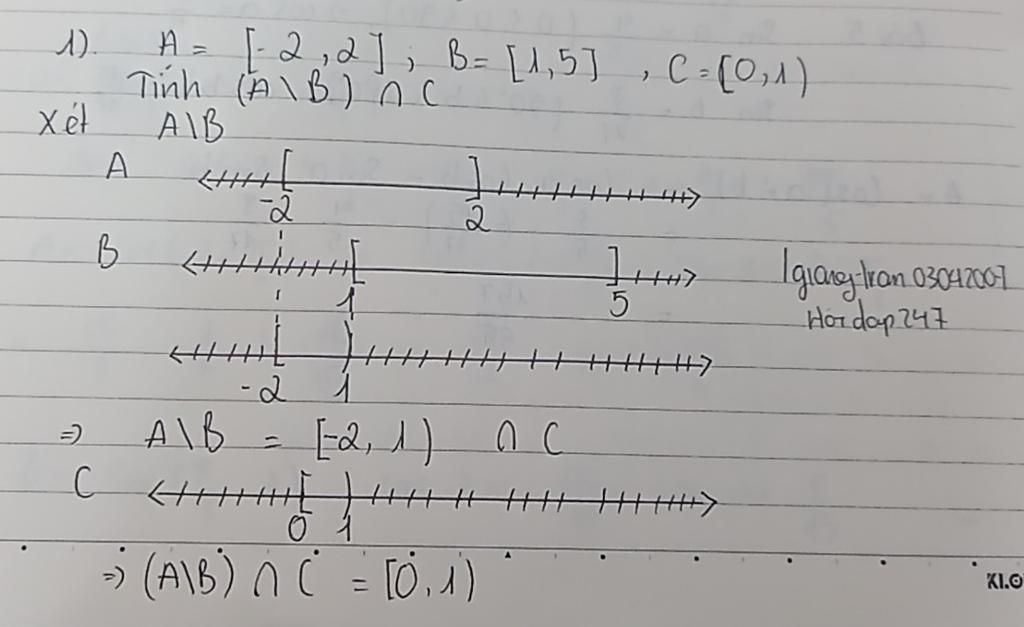 1). A = [-2, 2] ; B = [1, 5] , C = [0, 1)
Tính (A\B) ∩ C
Xét A\B
A
-2 2
B
1 5
giangtran03042007
Hoidap247
-2 1
⇒ A\B = [-2, 1) ∩ C
C
0 1
⇒ (A\B) ∩ C = [0, 1)